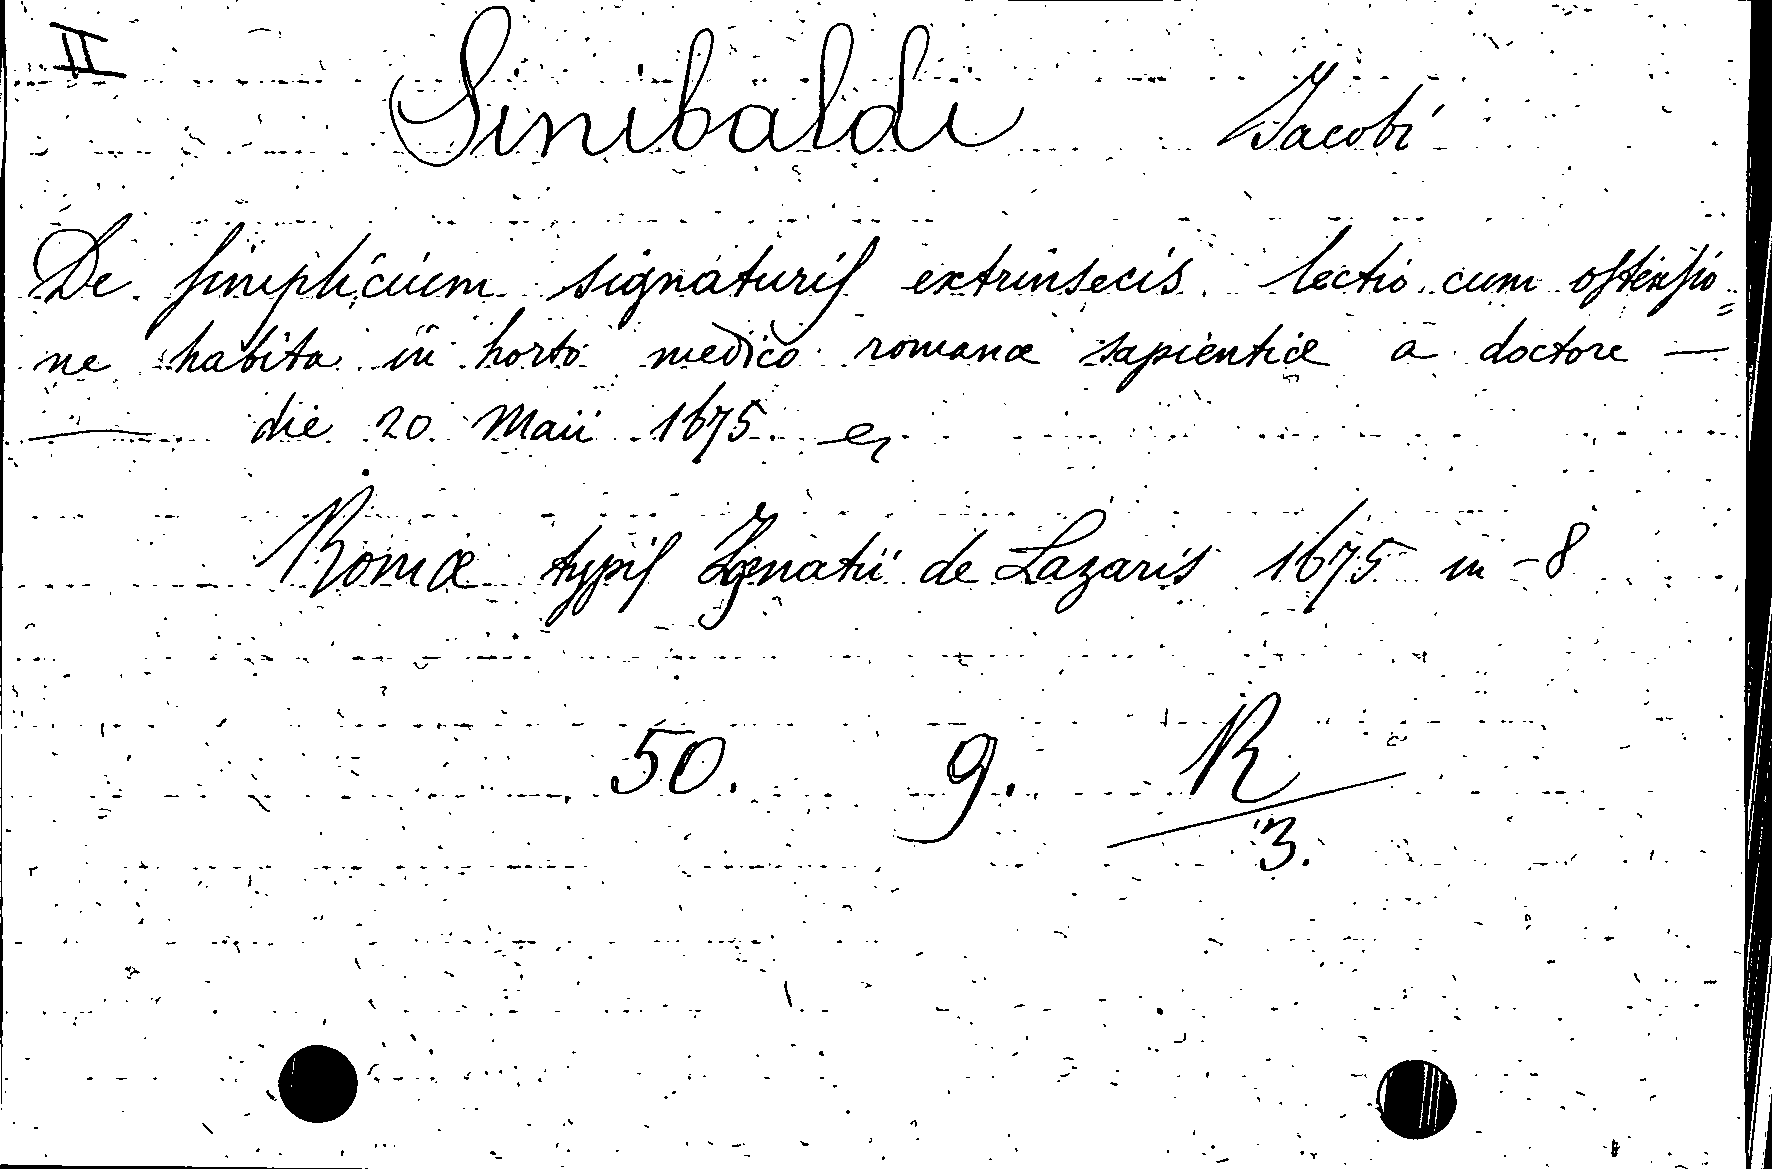 II Sinibaldi Jacobi
De simplicium signaturis extrinsecis lectio cum ostensio=
ne habita in horto medico romanæ sapientiæ a doctore —
— die 20 Maii 1675
Romæ typis Ignatii de Lazaris 1675 in-8
50. 9. R/3.